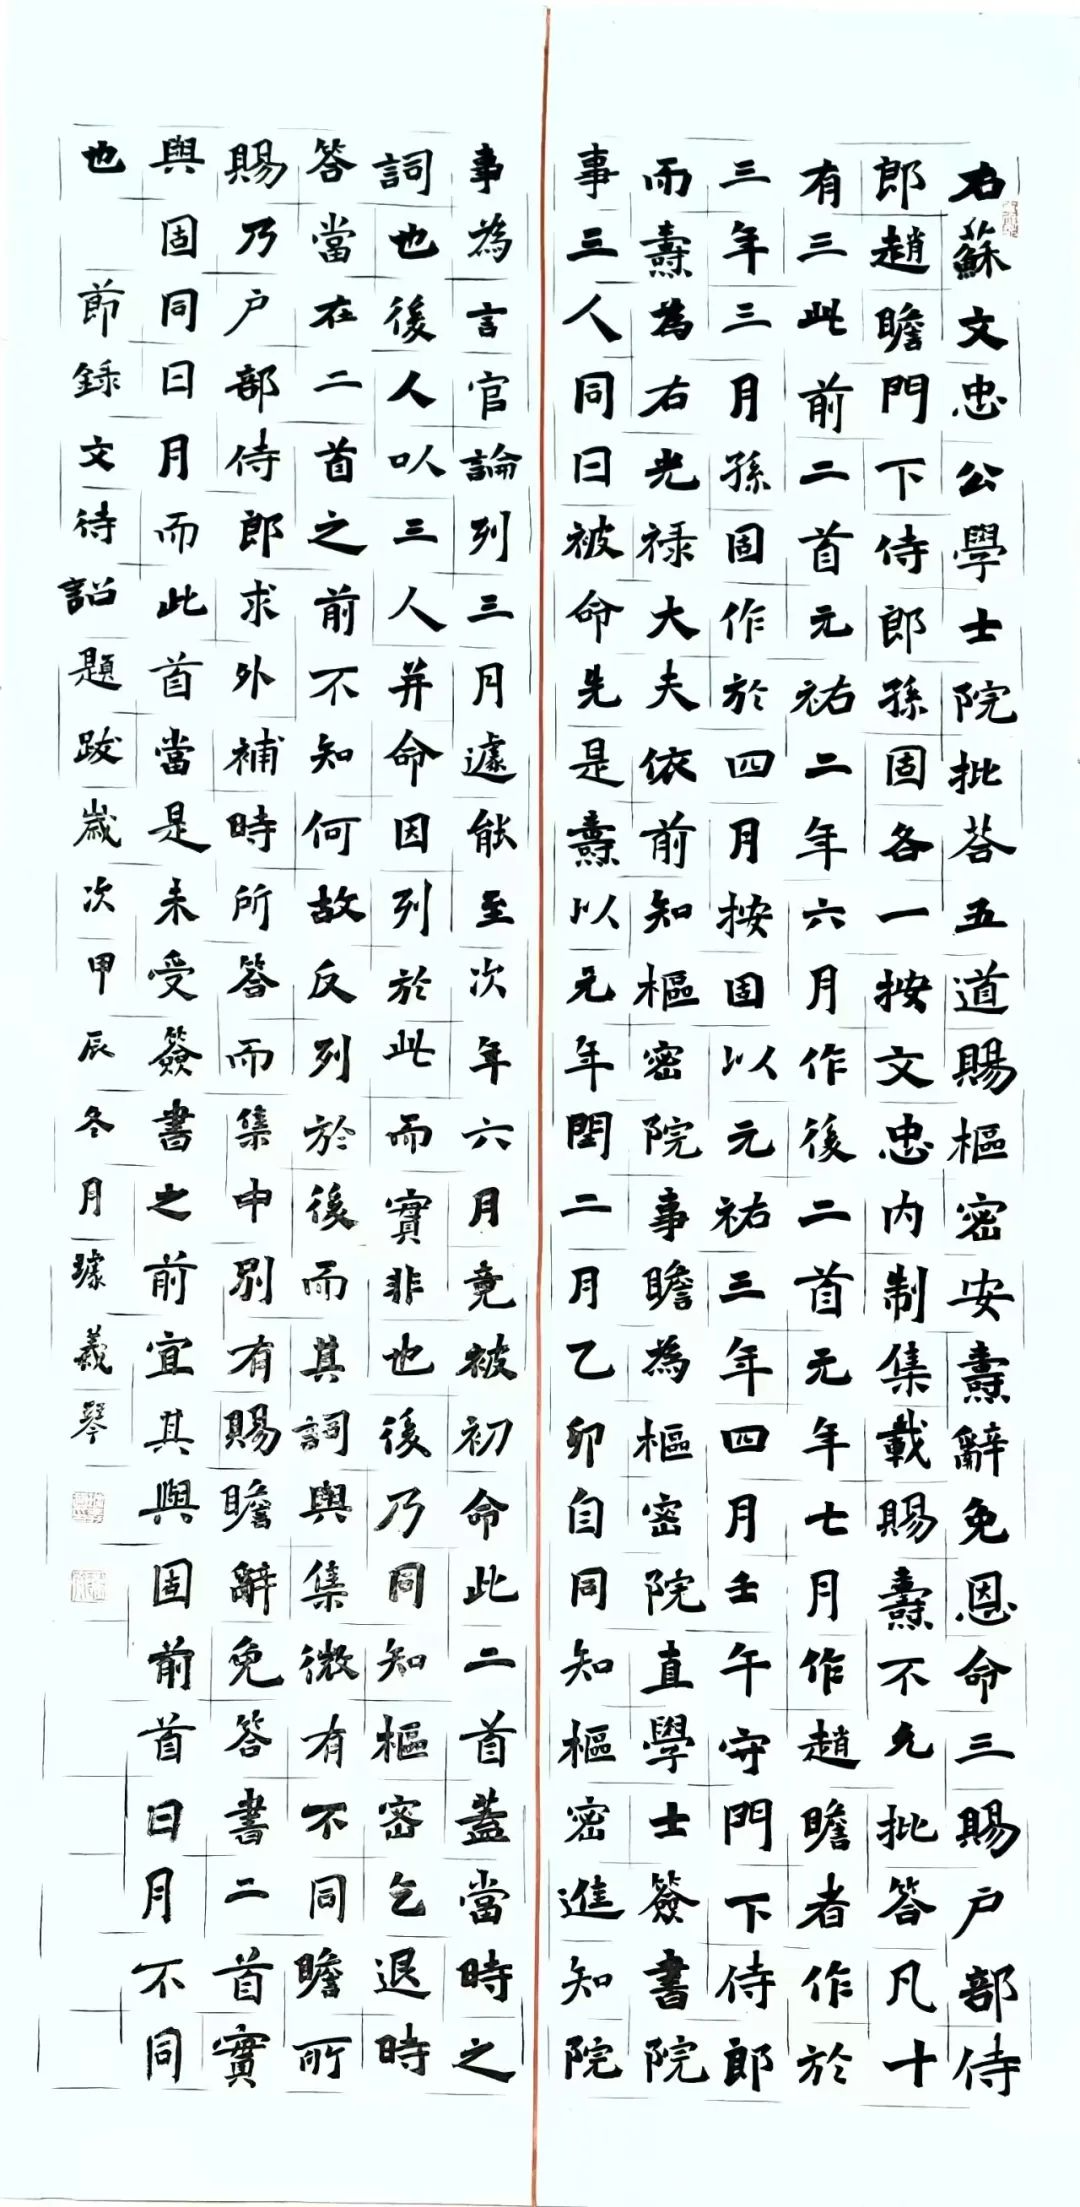 右蘇文忠公學士院批荅五道賜樞密安燾辭免恩命三賜户部侍
郎趙瞻門下侍郎孫固各一按文忠内制集載賜燾不允批答凡十
有三此前二首元祐二年六月作後二首元年七月作趙瞻者作於
三年三月孫固作於四月按固以元祐三年四月壬午守門下侍郎
而燾為右光禄大夫依前知樞密院事瞻為樞密院直學士簽書院
事三人同日被命先是燾以元年閏二月乙卯自同知樞密進知院
事為言官論列三月遽能至次年六月竟被初命此二首蓋當時之
詞也後人以三人并命因列於此而實非也後乃同知樞密乞退時
答當在二首之前不知何故反列於後而其詞與集微有不同瞻所
賜乃户部侍郎求外補時所答而集中别有賜瞻辭免答書二首實
與固同日月而此首當是未受簽書之前宜其與固前首日月不同
也 節録文待詔題跋歲次甲辰冬月璩義琴